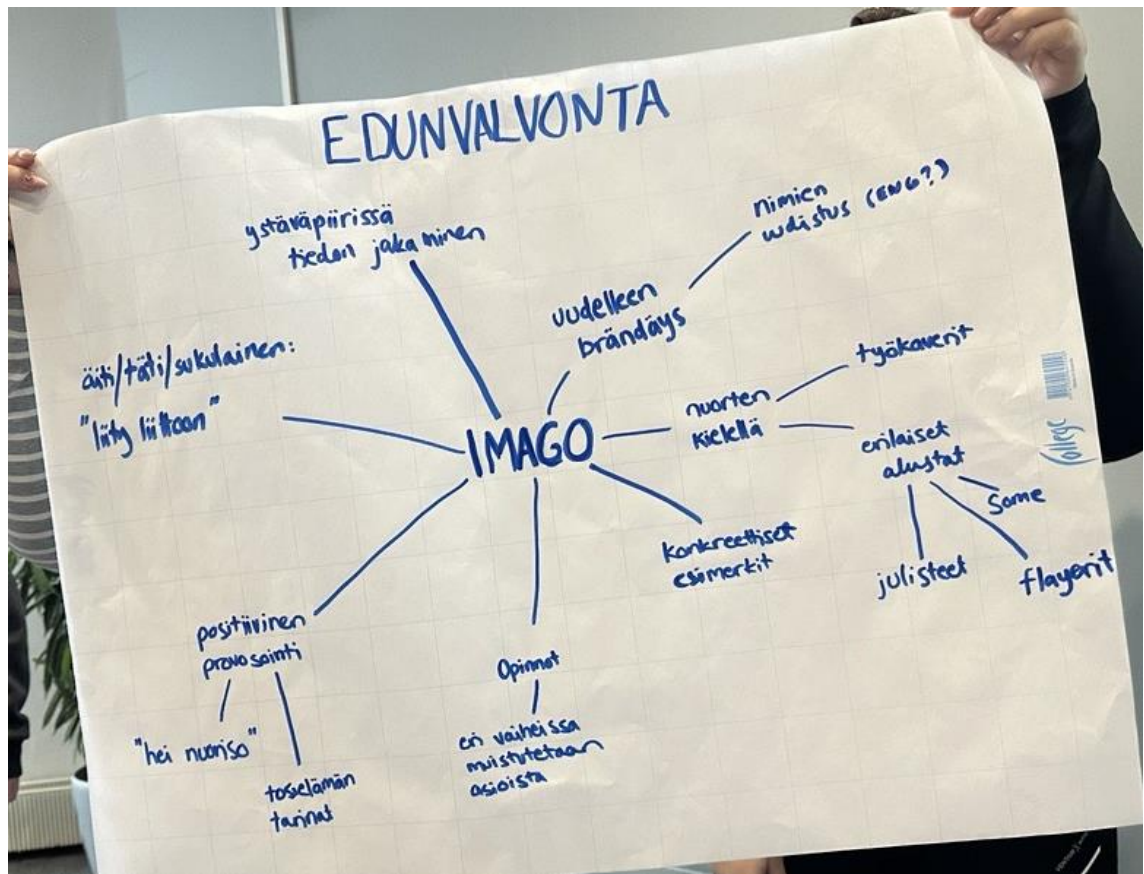 EDUNVALVONTA
ystäväpiirissä
tiedon jakaminen
nimien
uudistus (ENG?)
uudelleen
brändäys
äiti/täti/sukulainen:
"liity liittoon"
IMAGO
nuorten
kielellä
työkaverit
erilaiset
alustat
Some
julisteet
flayerit
konkreettiset
esimerkit
positiivinen
provosointi
"hei nuoriso"
tosielämän
tarinat
Opinnot
eri vaiheissa
muistutetaan
asioista
College